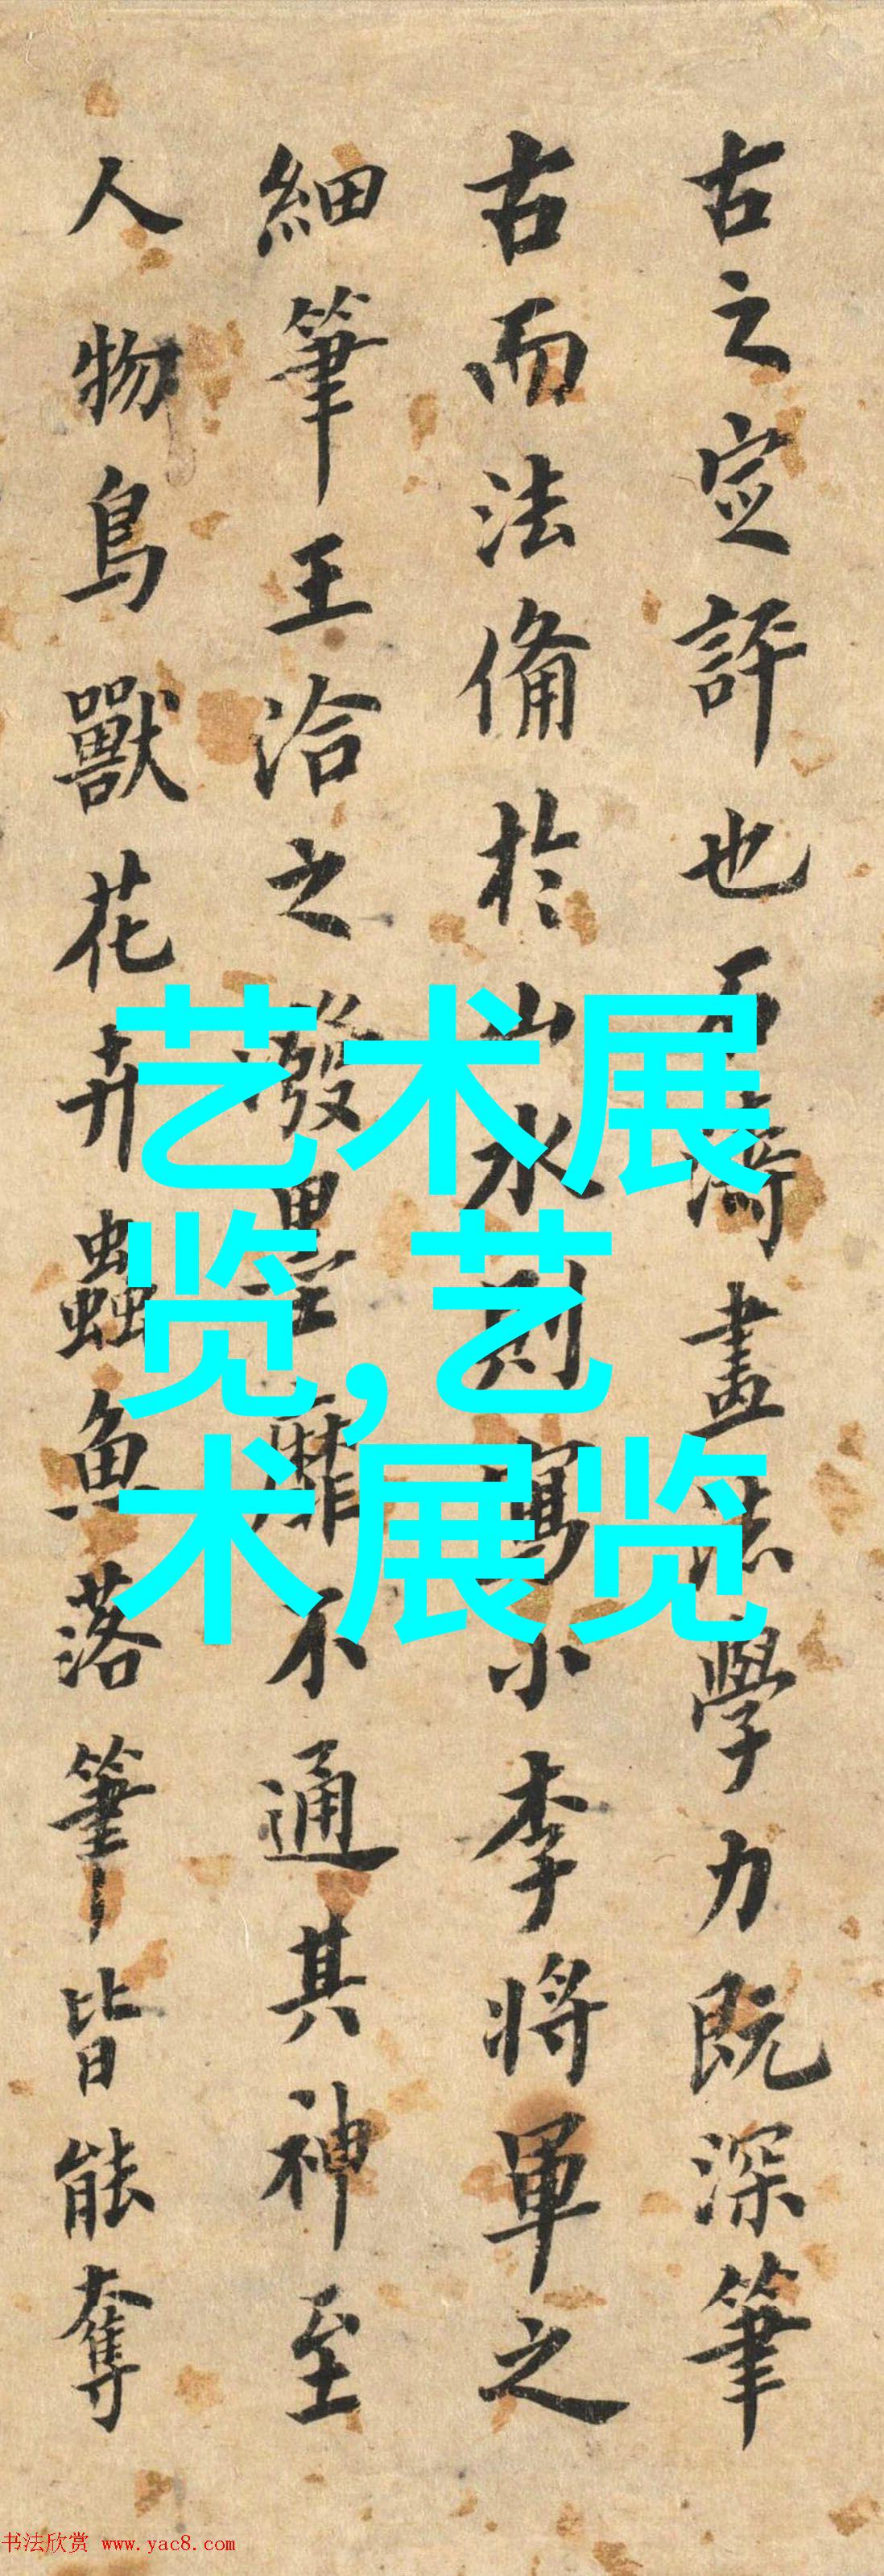 古之定評也石濤畫法學力既深筆
古而法備於山水則寫小李將軍之
細筆王洽之潑墨靡不通其神至
人物鳥獸花卉蟲魚落筆皆能奪
艺术展
览,艺
术展览
书法欣赏 www.yac8.com